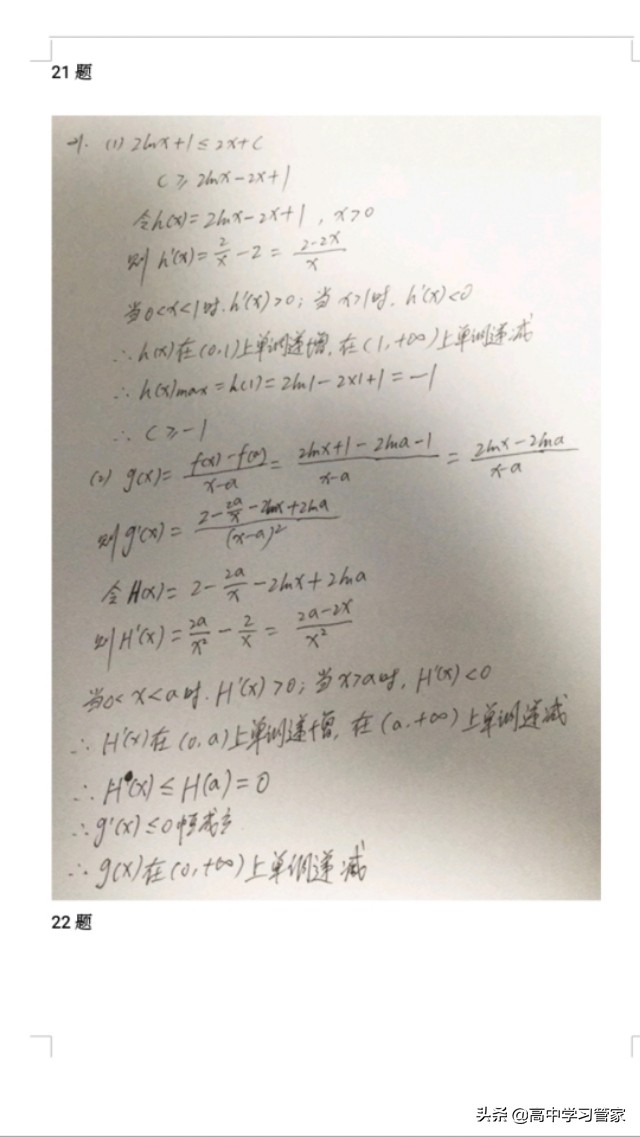 21 题
21. (1) 2lnx+1≤2x+c
c≥2lnx-2x+1
令h(x)=2lnx-2x+1，x>0
则h'(x)=2/x-2=(2-2x)/x
当0<x<1时.h'(x)>0；当x>1时.h'(x)<0
∴h(x)在(0,1)上单调递增,在(1,+∞)上单调递减
∴h(x)max=h(1)=2ln1-2×1+1=-1
∴c≥-1
(2) g(x)=(f(x)-f(a))/(x-a)=(2lnx+1-2lna-1)/(x-a)=(2lnx-2lna)/(x-a)
则g'(x)=(2-2a/x-2lnx+2lna)/(x-a)²
令H(x)=2-2a/x-2lnx+2lna
则H'(x)=2a/x²-2/x=(2a-2x)/x²
当0<x<a时.H'(x)>0；当x>a时,H'(x)<0
∴H'(x)在(0,a)上单调递增,在(a,+∞)上单调递减
∴H(x)≤H(a)=0
∴g'(x)≤0恒成立
∴g(x)在(0,+∞)上单调递减
22 题
头条 @高中学习管家